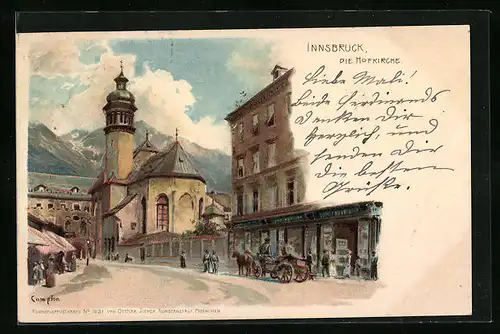 INNSBRUCK,
DIE HOFKIRCHE.
Liebe Mali!
beide Ferdinands
danken Dir
herzlich, und
senden Dir
die besten
Grüße.
Compton
KÜNSTLERPOSTKARTE No 1831 VON OTTMAR ZIEHER KUNSTANSTALT MUENCHEN